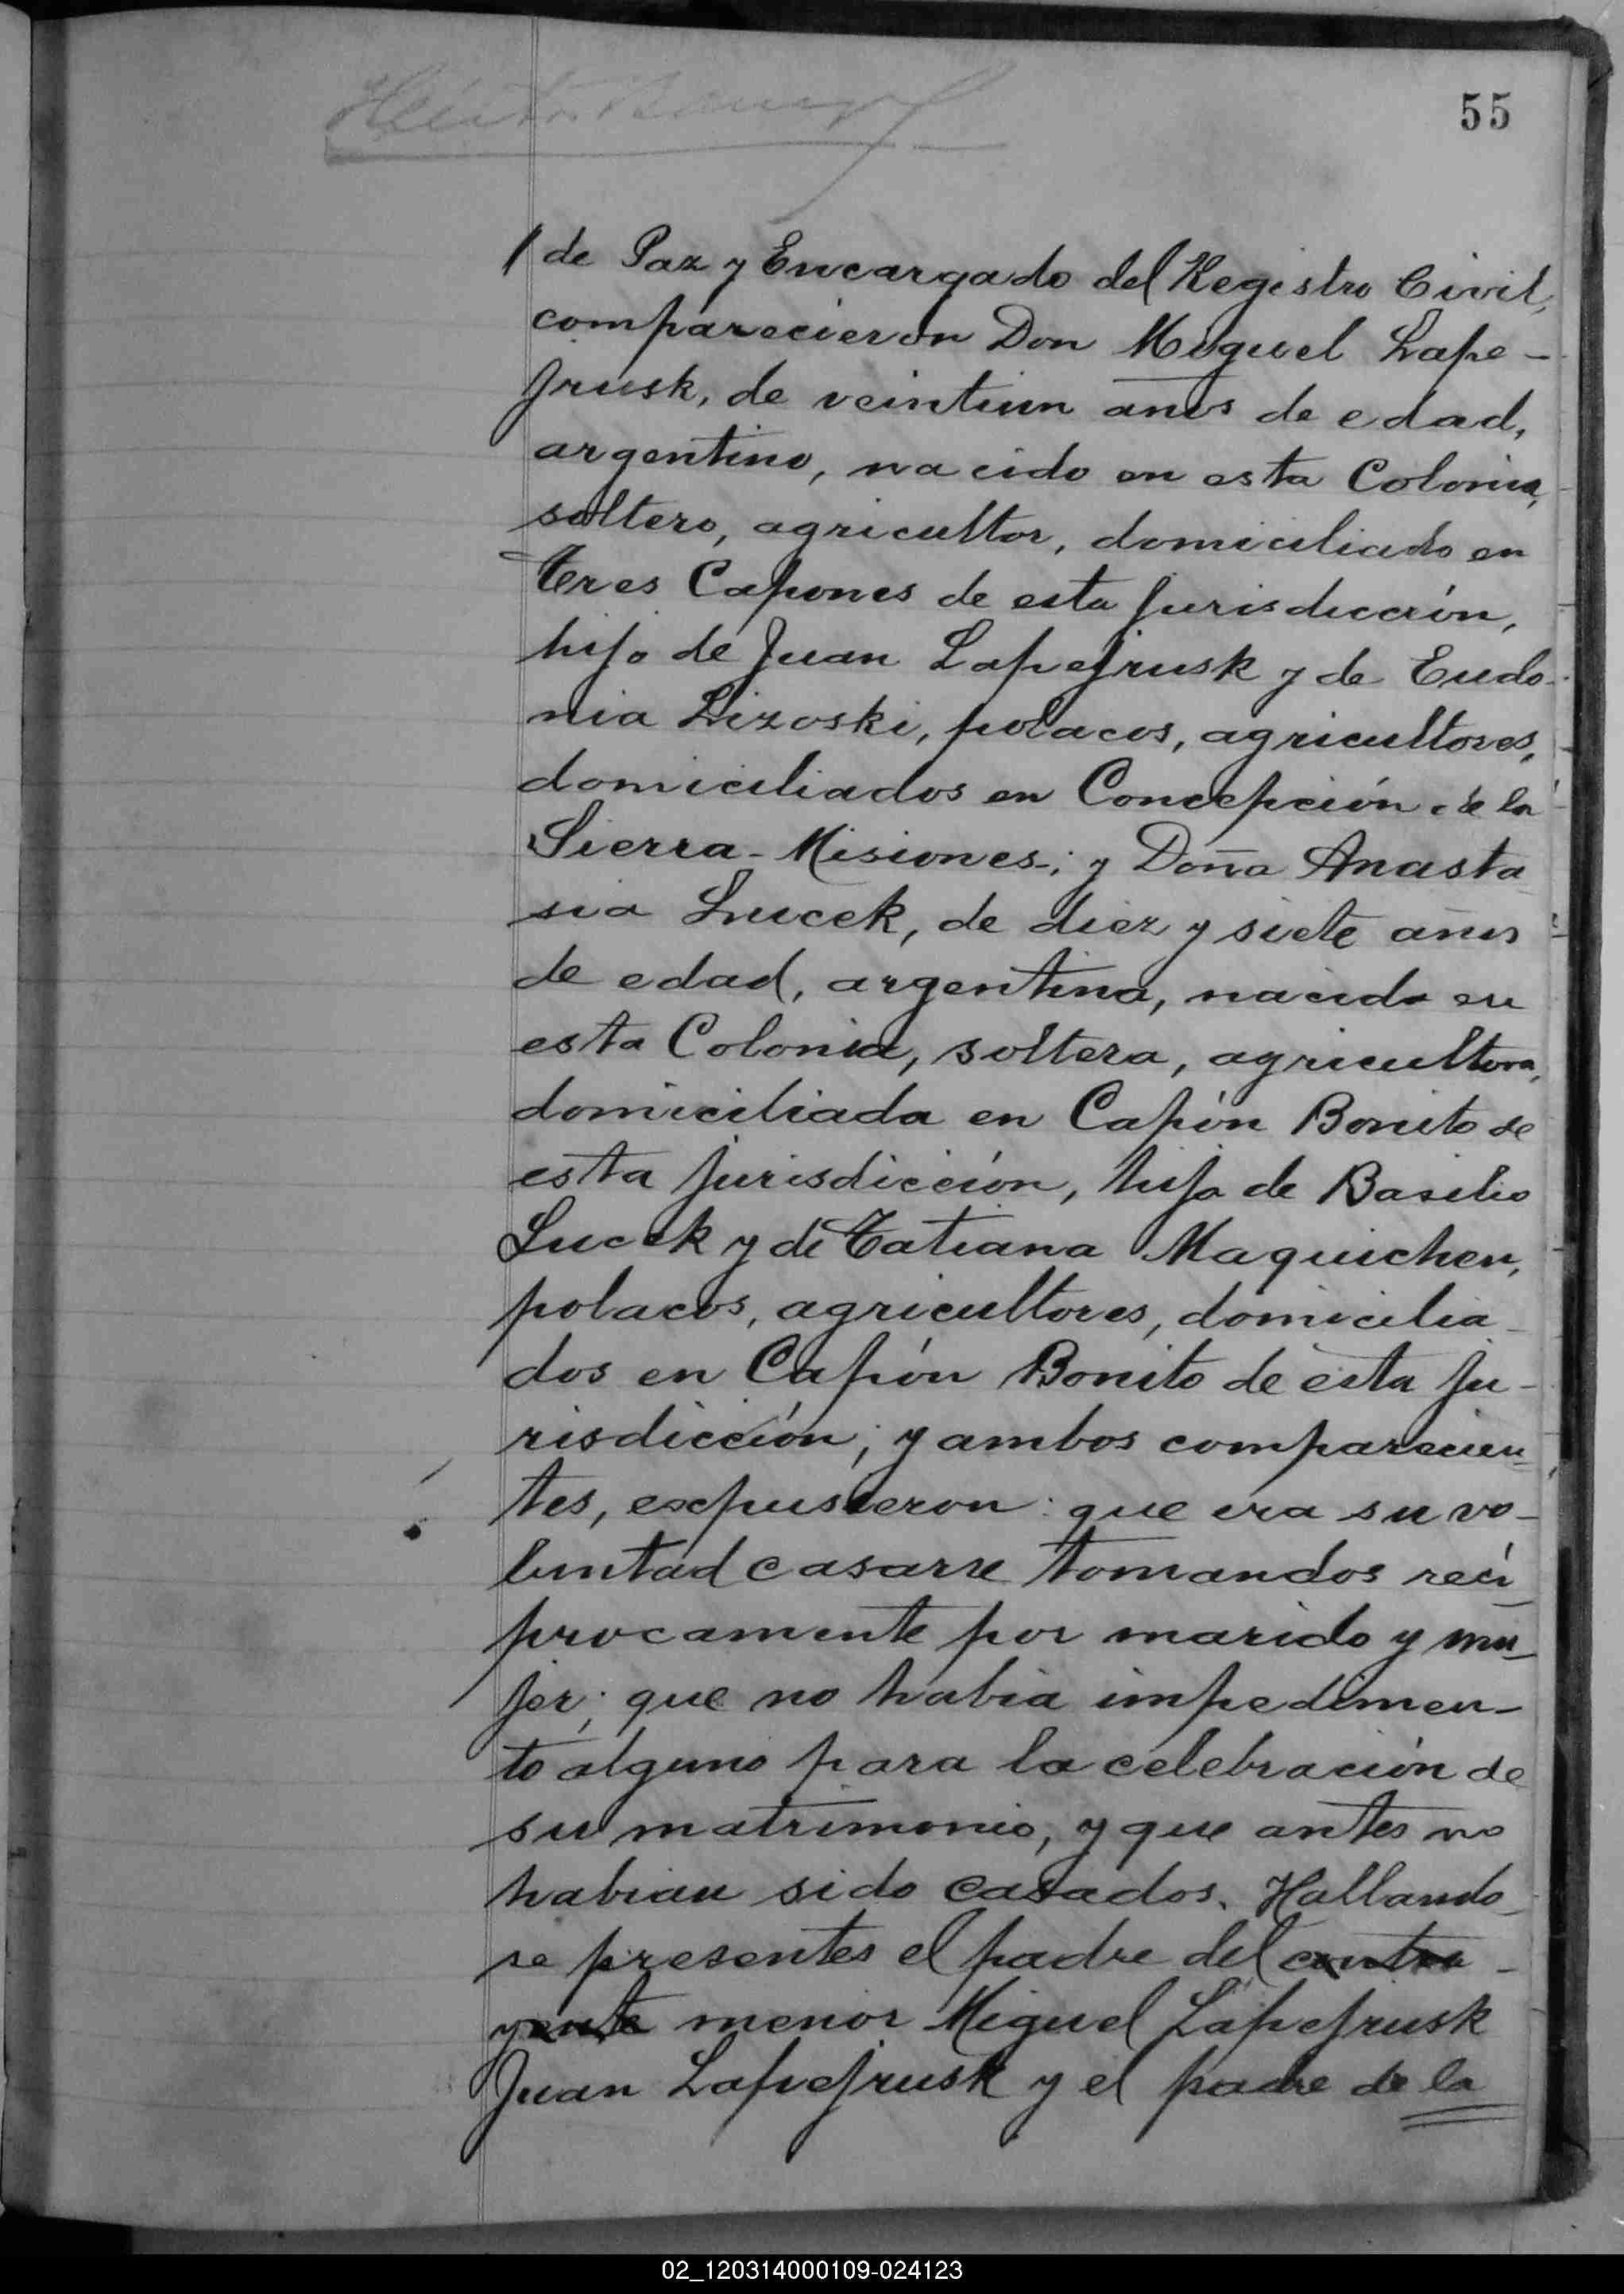 55
de Paz y Encargado del Registro Civil,
comparecieron Don Miguel Lape-
jrusk, de veintiun años de edad,
argentino, nacido en esta Colonia,
soltero, agricultor, domiciliado en
Tres Capones de esta jurisdicción,
hijo de Juan Lapejrusk y de Eudo-
nia Lizoski, polacos, agricultores,
domiciliados en Concepción de la
Sierra-Misiones; y Doña Anasta
sia Lucek, de diez y siete años
de edad, argentina, nacida en
esta Colonia, soltera, agricultora,
domiciliada en Capón Bonito de
esta jurisdicción, hija de Basilio
Lucek y de Tatiana Maquichen,
polacos, agricultores, domicilia-
dos en Capón Bonito de esta ju-
risdicción; y ambos comparecien-
tes, expusieron: que era su vo-
luntad casarse tomandos recí-
procamente por marido y mu-
jer; que no habia impedimen-
to alguno para la celebración de
su matrimonio, y que antes no
habian sido casados. Hallando-
se presentes el padre del contra-
yente menor Miguel Lapejrusk
Juan Lapejrusk y el padre de la
02_120314000109-024123